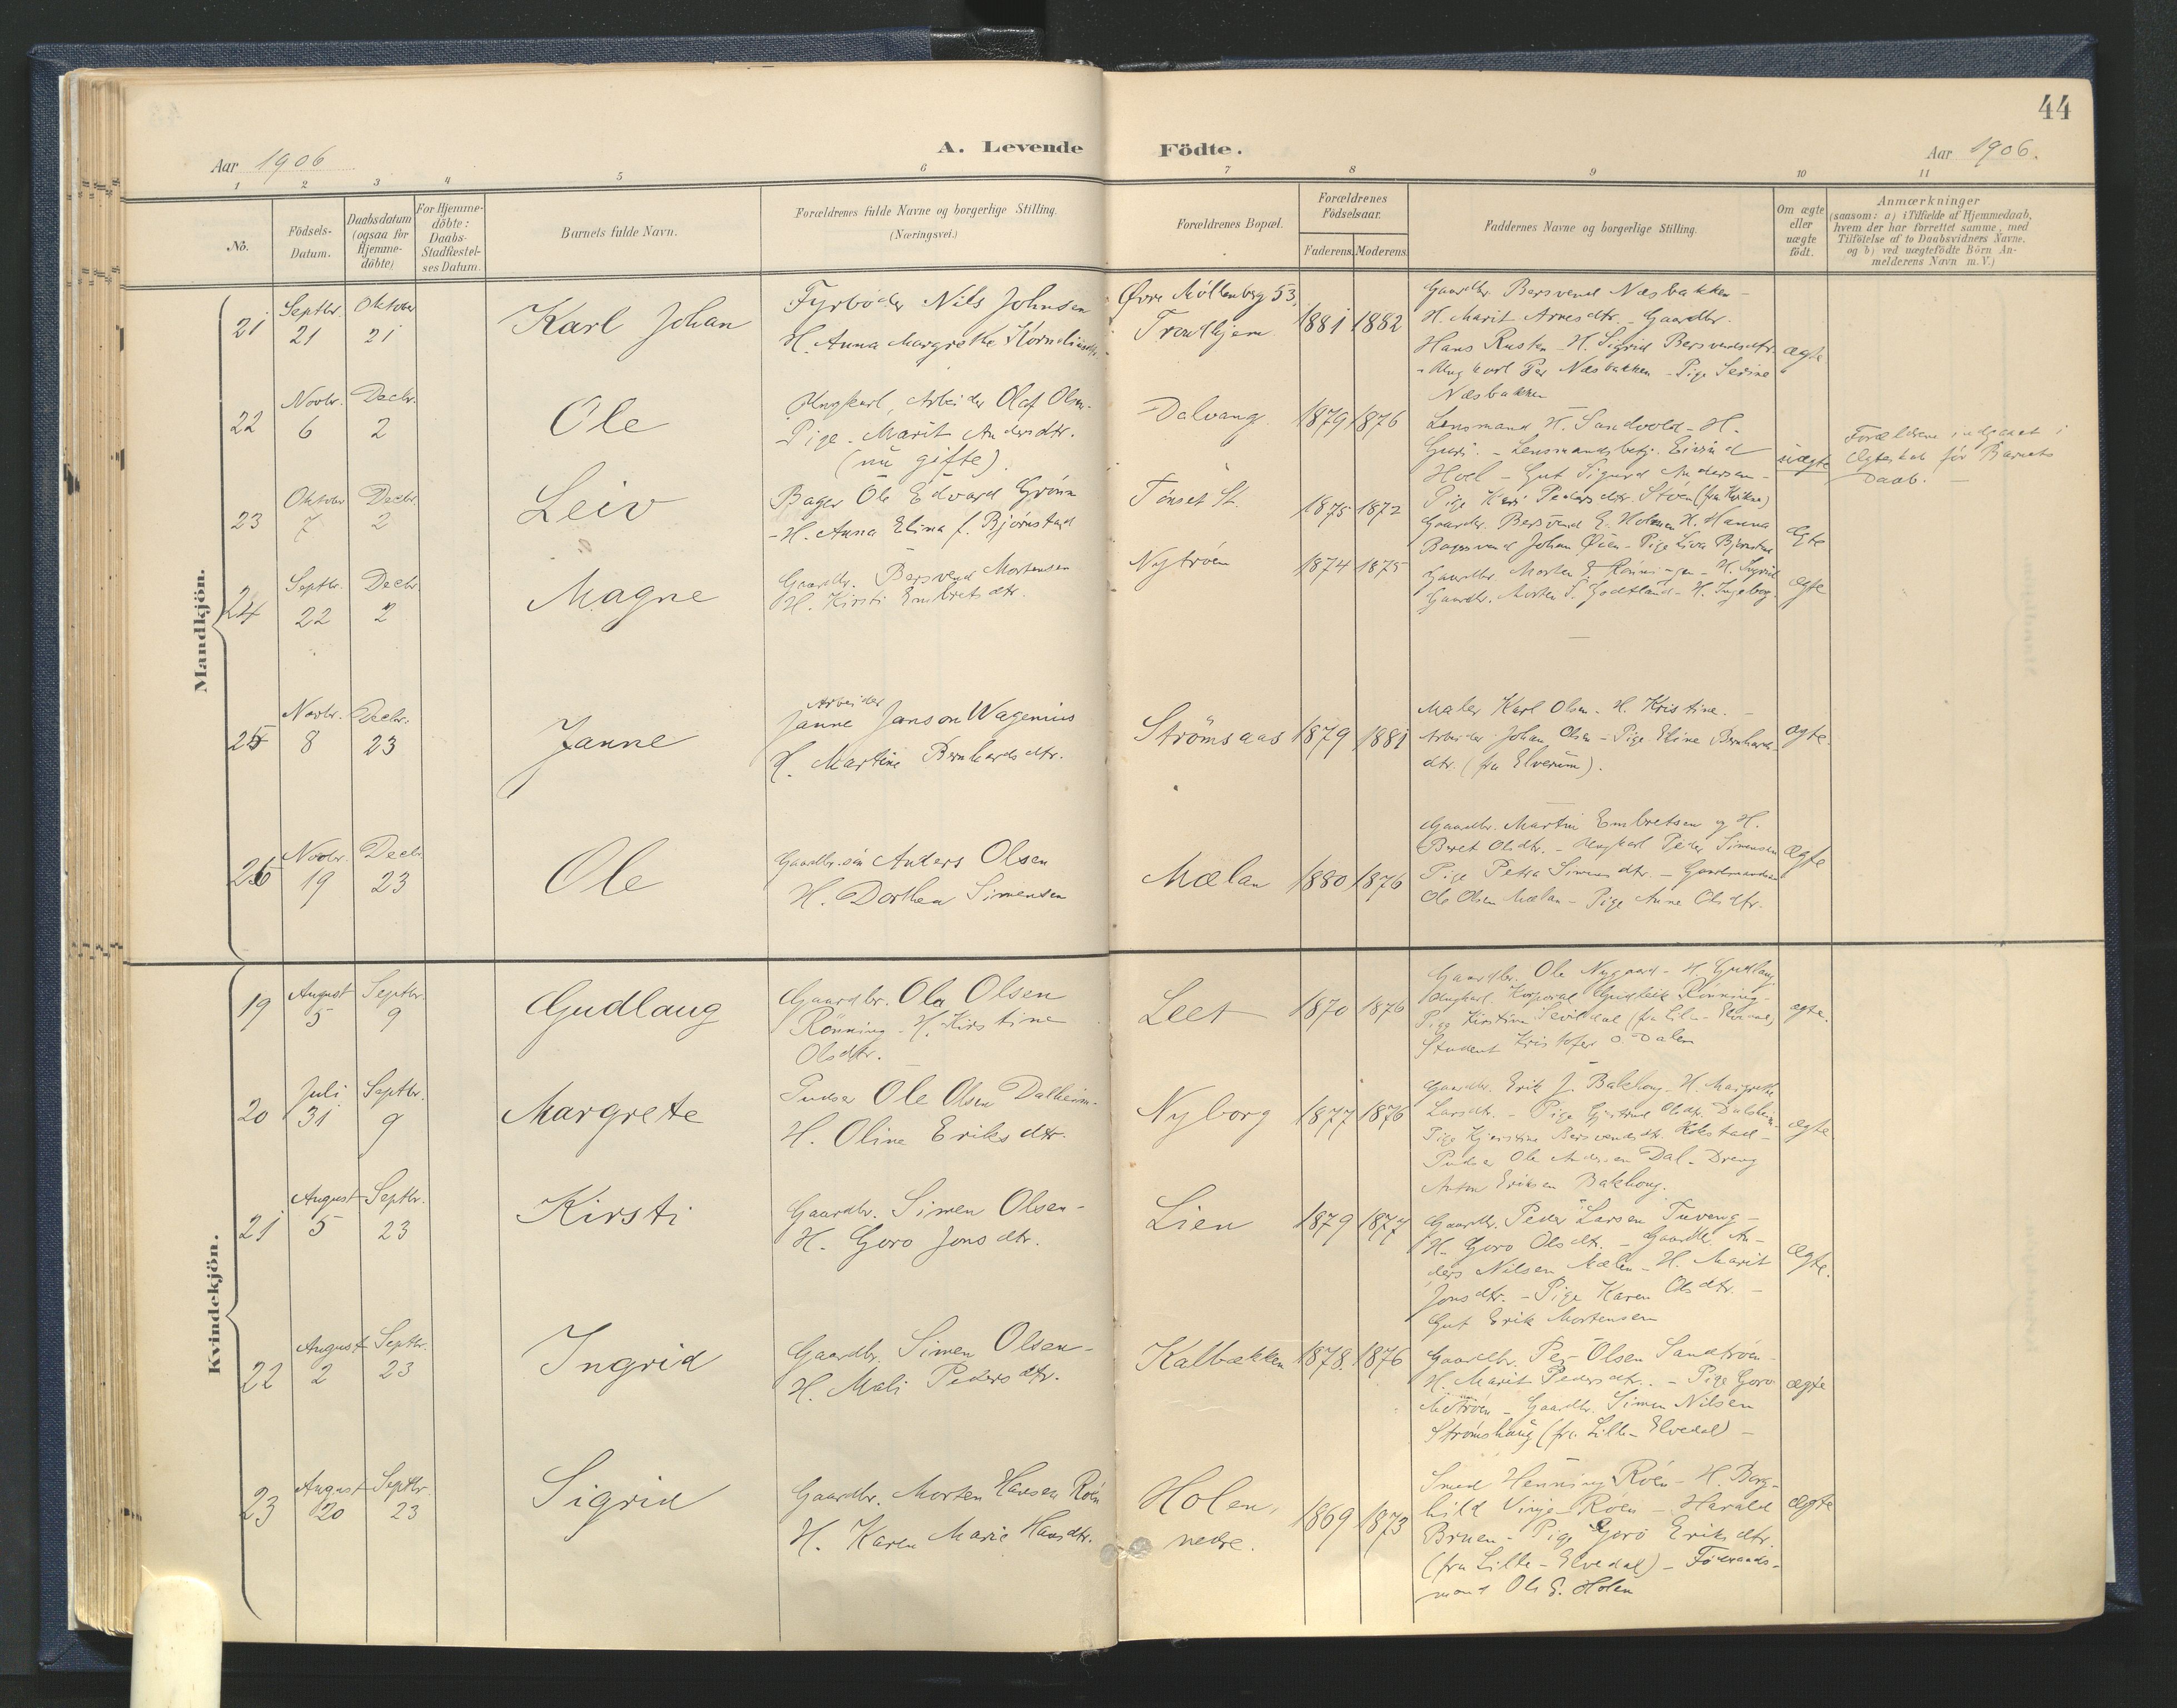 44
Aar 1906
A. Levende Födte.
Aar 1906.
1 2 3 4 5 6 7 8 9 10 11
No.
Födsels-
Datum.
Daabsdatum
(ogsaa for
Hjemme-
döbte)
For Hjemme-
döbte:
Daabs-
Stadfæstel-
ses Datum.
Barnets fulde Navn.
Forældrenes fulde Navne og borgerlige Stilling.
(Næringsvei.)
Forældrenes Bopæl.
Forældrenes
Födselsaar.
Faderens. Moderens.
Faddernes Navne og borgerlige Stilling.
Om ægte
eller
uægte
födt.
Anmærkninger
(saasom: a) i Tilfælde af Hjemmedaab,
hvem der har forrettet samme, med
Tilföielse af to Daabsvidners Navne,
og b) ved uægtefödte Börn An-
melderens Navn m. V.)
Mandkjön.
21
Septbr.
21
Oktober
21
Karl Johan
Fyrbøder Nils Johnsen
H. Anna Margrethe
Øvre Møllenberg 53,
Trondhjem
1881 1882
Gaardbr. Bersvend Næsbakken -
H. Marit Arnesdtr. - Gaardbr.
Hans Rusten - H. Sigrid Bersvendsdtr.
- Ungkarl Per Næsbakken - Pige Serine
Næsbakken
ægte
22
Novbr.
6
Decbr.
2
Ole
Ungkarl, Arbeider Olaf Olsen.
Pige. Marit Andersdtr.
(nu gifte).
Dalvang
1879 1876
Lensmand H. Sandvold - H.
Guri. - Lensmandsbetj. Eivind
Hoel - Gut Sigurd Andersen -
Pige Kari Pedersdtr. Støen (fra Kvikne)
uægte
Forældrene indgaaet i
Ægteskab før Barnets
Daab. -
23
Oktober
7
Decbr.
2
Leiv
Bager Ole Edvard Grønn
- H. Anna Elina f. Bjørnstad
Tønset St.
1875 1872
Gaardbr. Bersvend E. Holmen H. Hanna
Bagersvend Johan Øien - Pige Livra Bjørnstad
Ægte
24
Septbr.
22
Decbr.
2
Magne
Gaardbr. Bersvend Mortensen
H. Kirsti Embretsdtr.
Nytrøen
1874 1875
Gaardbr. Morten E. Rønningen - H. Ingrid
Gaardbr. Morten S. Godtland - H. Ingeborg.
ægte
25
Novbr.
8
Decbr.
23
Janne
Arbeider
Janne Janson Wagenius
H. Martine Bernhardsdtr.
Strömsaas
1879 1881
Maler Karl Olsen. H. Kristine. -
Arbeider Johan Olsen - Pige Eline Bernhards-
dtr. (fra Elverum).
ægte.
26
Novbr.
19
Decbr.
23
Ole
Gaardbr.søn Anders Olsen
H. Dorthea Simensen
Mælan
1880 1876
Gaardbr. Martin Embretsen og H.
Beret Olsdtr. - Ungkarl Peder Simensen
Pige Petra Simensdtr. - Gaardmandssøn
Ole Olsen Mælan - Pige Anne Olsdtr.
ægte
Kvindekjön.
19
August
5
Septbr.
9
Gudlaug
Gaardbr. Ola Olsen
Rønning - H. Kirstine
Olsdtr.
Leet
1870 1876
Gaardbr. Ole Nygaard - H. Gudlaug
Ungkarl. Korporal Gudleik Rønning -
Pige Kirstine (fra Lille-Elvedal)
Student Kristofer O. Dalen
ægte.
20
Juli
31
Septbr.
9
Margrete
Pudser Ole Olsen Dalheim -
H. Oline Eriksdtr.
Nyborg
1877 1876
Gaardbr. Erik J. Bakhoug - H. Margrethe
Larsdtr. - Pige Gjertrud Olsdtr. Dalsheim -
Pige Kjerstine Bersvendsdtr. Kokstad -
Pudser Ole Andersen Dal - Dreng
Anton Eriksen Bakhoug.
ægte.
21
August
5
Septbr.
23
Kirsti
Gaardbr. Simen Olsen -
H. Goro Jonsdtr.
Lien
1879 1877
Gaardbr. Peder Larsen Tuveng -
H. Goro Olsdtr. - Gaardbr. An-
ders Nilsen Mælen - H. Marit
Jonsdtr. - Pige Karen Olsdtr. -
Gut Erik Mortensen
Ægte.
22
August
2
Septbr.
23
Ingrid
Gaardbr. Simen Olsen -
H. Mali Pedersdtr.
Kalbækken
1878. 1876
Gaardbr. Per Olsen Sandtrøen -
H. Marit Pedersdtr. - Pige Goro
Motrøen - Gaardbr. Simen Nilsen
Strømshaug (fra Lille-Elvedal) -
ægte
23
August
20
Septbr.
23
Sigrid
Gaardbr. Morten Hansen Røen
H. Karen Marie Hansdtr.
Holen,
nedre.
1869 1873
Smed Henning Røen - H. Borg-
hild Vinje-Røen - Harald
Bruen - Pige Goro Eriksdtr.
(fra Lille-Elvedal) - Føderaads-
mand Ole E. Holen
Ægte